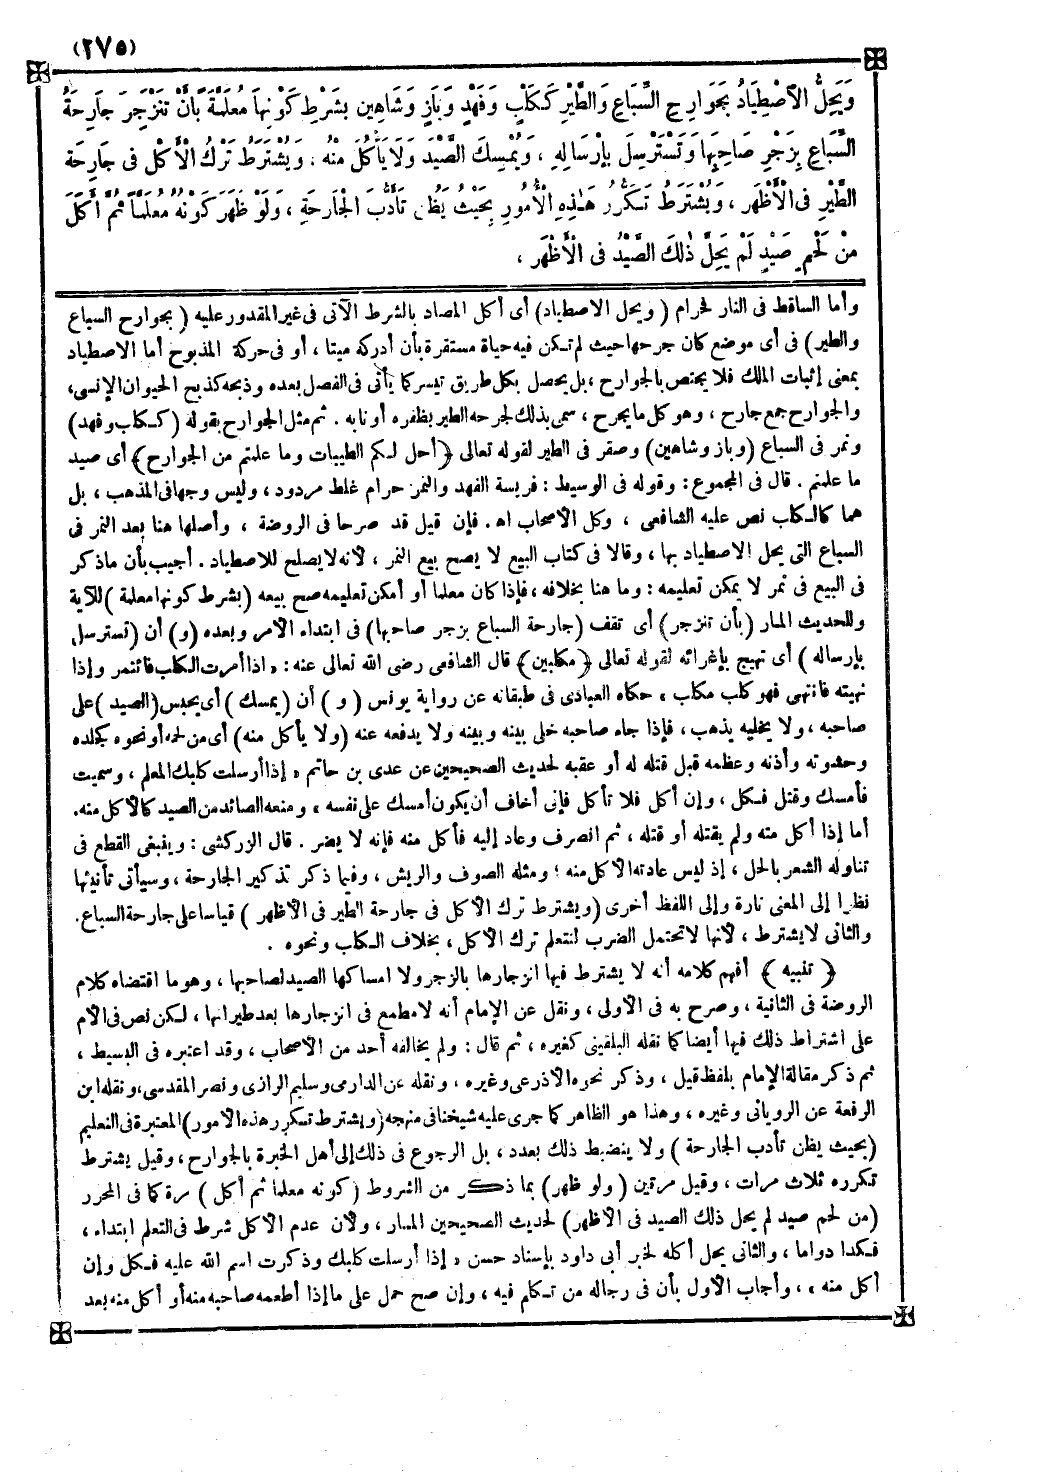 (٢٧٥)
وَيَحِلُّ الاِصْطِيَادُ بِجَوَارِحِ السِّبَاعِ وَالطَّيْرِ كَكَلْبٍ وَفَهْدٍ وَبَازٍ وَشَاهِينٍ بِشَرْطِ كَوْنِهَا مُعَلَّمَةً بِأَنْ تَنْزَجِرَ جَارِحَةُ
السِّبَاعِ بِزَجْرِ صَاحِبِهَا وَتَسْتَرْسِلَ بِإِرْسَالِهِ ، وَيُمْسِكَ الصَّيْدَ وَلَا يَأْكُلَ مِنْهُ ، وَيُشْتَرَطُ تَرْكُ الْأَكْلِ فِى جَارِحَةِ
الطَّيْرِ فِى الْأَظْهَرِ ، وَيُشْتَرَطُ تَكَرُّرُ هَذِهِ الْأُمُورِ بِحَيْثُ يُظَنُّ تَأَدُّبُ الْجَارِحَةِ ، وَلَوْ ظَهَرَ كَوْنُهُ مُعَلَّمًا ثُمَّ أَكَلَ
مِنْ لَحْمِ صَيْدٍ لَمْ يَحِلَّ ذَلِكَ الصَّيْدُ فِى الْأَظْهَرِ ،
وأما الساقط فى النار فحرام ( ويحل الاصطياد) أى أكل المصاد بالشرط الآتى فى غير المقدور عليه ( بجوارح السباع
والطير) فى أى موضع كان جرحها حيث لم تكن فيه حياة مستقرة بأن أدركه ميتا ، أو فى حركة المذبوح أما الاصطياد
بمعنى إثبات الملك فلا يختص بالجوارح ، بل يحصل بكل طريق تيسر كما يأتى فى الفصل بعده وذبحه كذبح الحيوان الإنسى،
والجوارح جمع جارح ، وهو كل ما يجرح ، سمى بذلك لجرحه الطير بظفره أو نابه . ثم مثل الجوارح بقوله (ككلب وفهد)
ونمر فى السباع (وباز وشاهين) وصقر فى الطير لقوله تعالى ﴿أحل لكم الطيبات وما علمتم من الجوارح﴾ أى صيد
ما علمتم . قال فى المجموع : وقوله فى الوسيط : فريسة الفهد والنمر حرام غلط مردود ، وليس وجها فى المذهب ، بل
هما كالكلب نص عليه الشافعى ، وكل الأصحاب اه . فإن قيل قد صرحا فى الروضة ، وأصلها هنا بعد النمر فى
السباع التى يحل الاصطياد بها ، وقالا فى كتاب البيع لا يصح بيع النمر ، لأنه لا يصلح للاصطياد . أجيب بأن ما ذكر
فى البيع فى نمر لا يمكن تعليمه : وما هنا بخلافه ، فإذا كان معلما أو أمكن تعليمه صح بيعه (بشرط كونها معلمة ) للآية
وللحديث المار (بأن تنزجر) أى تقف (جارحة السباع بزجر صاحبها) فى ابتداء الأمر وبعده (و) أن (تسترسل
بإرساله ) أى تهيج بإغرائه لقوله تعالى ﴿مكلبين﴾ قال الشافعى رضى الله تعالى عنه : « اذا أمرت الكلب فائتمر وإذا
نهيته فانتهى فهو كلب مكلب » حكاه العبادى فى طبقاته عن رواية يونس ( و ) أن (يمسك ) أى يحبس (الصيد ) على
صاحبه ، ولا يخليه يذهب ، فإذا جاء صاحبه خلى بينه وبينه ولا يدفعه عنه (ولا يأكل منه) أى من لحمه أو نحوه كجلده
وحشوته وأذنه وعظمه قبل قتله له أو عقبه لحديث الصحيحين عن عدى بن حاتم « إذا أرسلت كلبك المعلم ، وسميت
فأمسك وقتل فكل ، وإن أكل فلا تأكل فإنى أخاف أن يكون أمسك على نفسه » ومنعه الصائد من الصيد كالأكل منه.
أما إذا أكل منه ولم يقتله أو قتله ، ثم انصرف وعاد إليه فأكل منه فإنه لا يضر . قال الزركشى : وينبغى القطع فى
تناوله الشعر بالحل ، إذ ليس عادته الأكل منه ؛ ومثله الصوف والريش ، وفيما ذكر تذكير الجارحة ، وسيأتى تأنيثها
نظرا إلى المعنى تارة وإلى اللفظ أخرى (ويشترط ترك الأكل فى جارحة الطير فى الأظهر ) قياسا على جارحة السباع.
والثانى لا يشترط ، لأنها لا تحتمل الضرب لتتعلم ترك الأكل ، بخلاف الكلب ونحوه .
﴿ تنبيه ﴾ أفهم كلامه أنه لا يشترط فيها انزجارها بالزجر ولا امساكها الصيد لصاحبها ، وهو ما اقتضاه كلام
الروضة فى الثانية ، وصرح به فى الأولى ، ونقل عن الإمام أنه لا مطمع فى انزجارها بعد طيرانها ، لكن نص فى الأم
على اشتراط ذلك فيها أيضا كما نقله البلقينى كغيره ، ثم قال : ولم يخالفه أحد من الأصحاب ، وقد اعتبره فى البسيط ،
ثم ذكر مقالة الإمام بلفظ قيل ، وذكر نحوه الأذرعى وغيره ، ونقله عن الدارمى وسليم الرازى ونصر المقدسى، ونقله ابن
الرفعة عن الرويانى وغيره ، وهذا هو الظاهر كما جرى عليه شيخنا فى منهجه (ويشترط تكرر هذه الأمور) المعتبرة فى التعليم
(بحيث يظن تأدب الجارحة ) ولا ينضبط ذلك بعدد ، بل الرجوع فى ذلك إلى أهل الخبرة بالجوارح ، وقيل يشترط
تكرره ثلاث مرات ، وقيل مرتين ( ولو ظهر) بما ذكر من الشروط (كونه معلما ثم أكل ) مرة كما فى المحرر
(من لحم صيد لم يحل ذلك الصيد فى الأظهر) لحديث الصحيحين المار ، ولأن عدم الأكل شرط فى التعلم ابتداء ،
فكذا دواما ، والثانى يحل أكله لخبر أبى داود بإسناد حسن « إذا أرسلت كلبك وذكرت اسم الله عليه فكل وإن
أكل منه » ، وأجاب الأول بأن فى رجاله من تكلم فيه ، وإن صح حمل على ما إذا أطعمه صاحبه منه أو أكل منه بعد